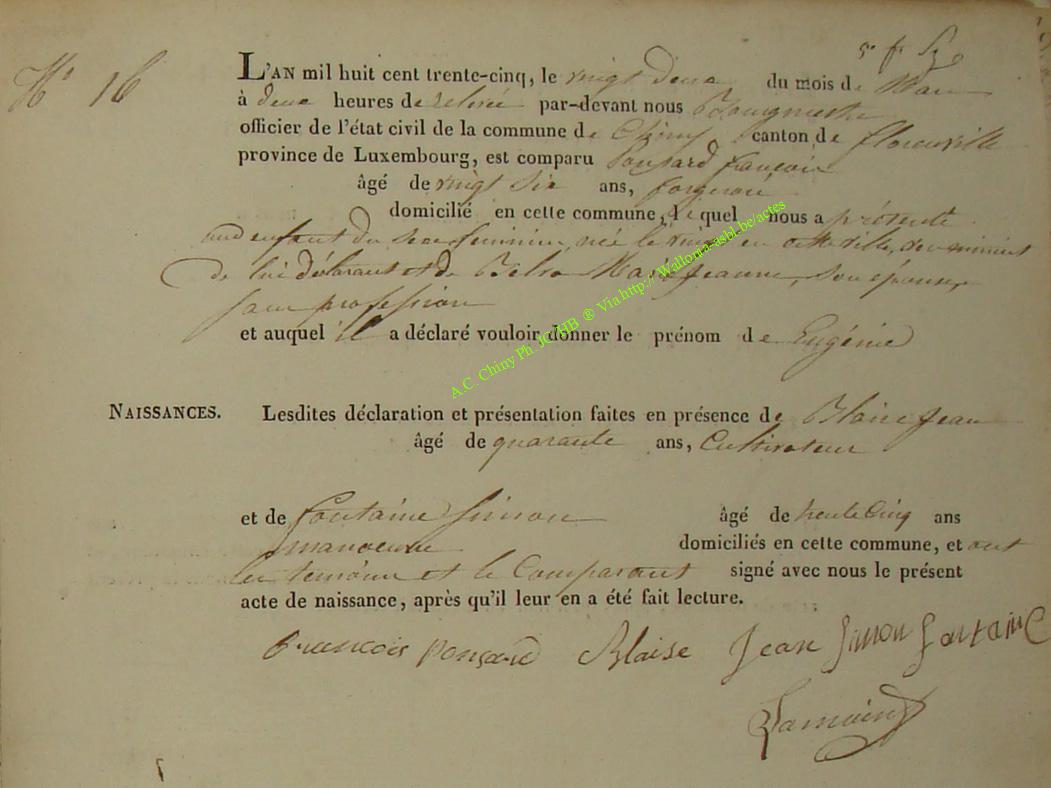 N° 16
L'AN mil huit cent trente-cinq, le vingt deux du mois de Mars
à deux heures de relevée par-devant nous Bourgmestre
officier de l'état civil de la commune de Chiny canton de florenville
province de Luxembourg, est comparu Ponsard françois
âgé de vingt six ans, forgeron
domicilié en cette commune, lequel nous a présenté
une enfant du sexe feminin, née le vingt en cette ville, provenant
de lui déclarant et de Marie Jeanne, son épouse,
sans profession
et auquel il a déclaré vouloir donner le prénom de Eugénie
A.C. Chiny Ph. JCHB ® Via http:// Wallonia-asbl-be/actes
NAISSANCES. Lesdites déclaration et présentation faites en présence de Blaise Jean
âgé de quarante ans, Cultivateur
et de Fontaine Simon âgé de trente Cinq ans
manoeuvre domiciliés en cette commune, et ont
les temoins et le Comparant signé avec nous le présent
acte de naissance, après qu'il leur en a été fait lecture.
francois ponsard Blaise Jean Simon fontaine